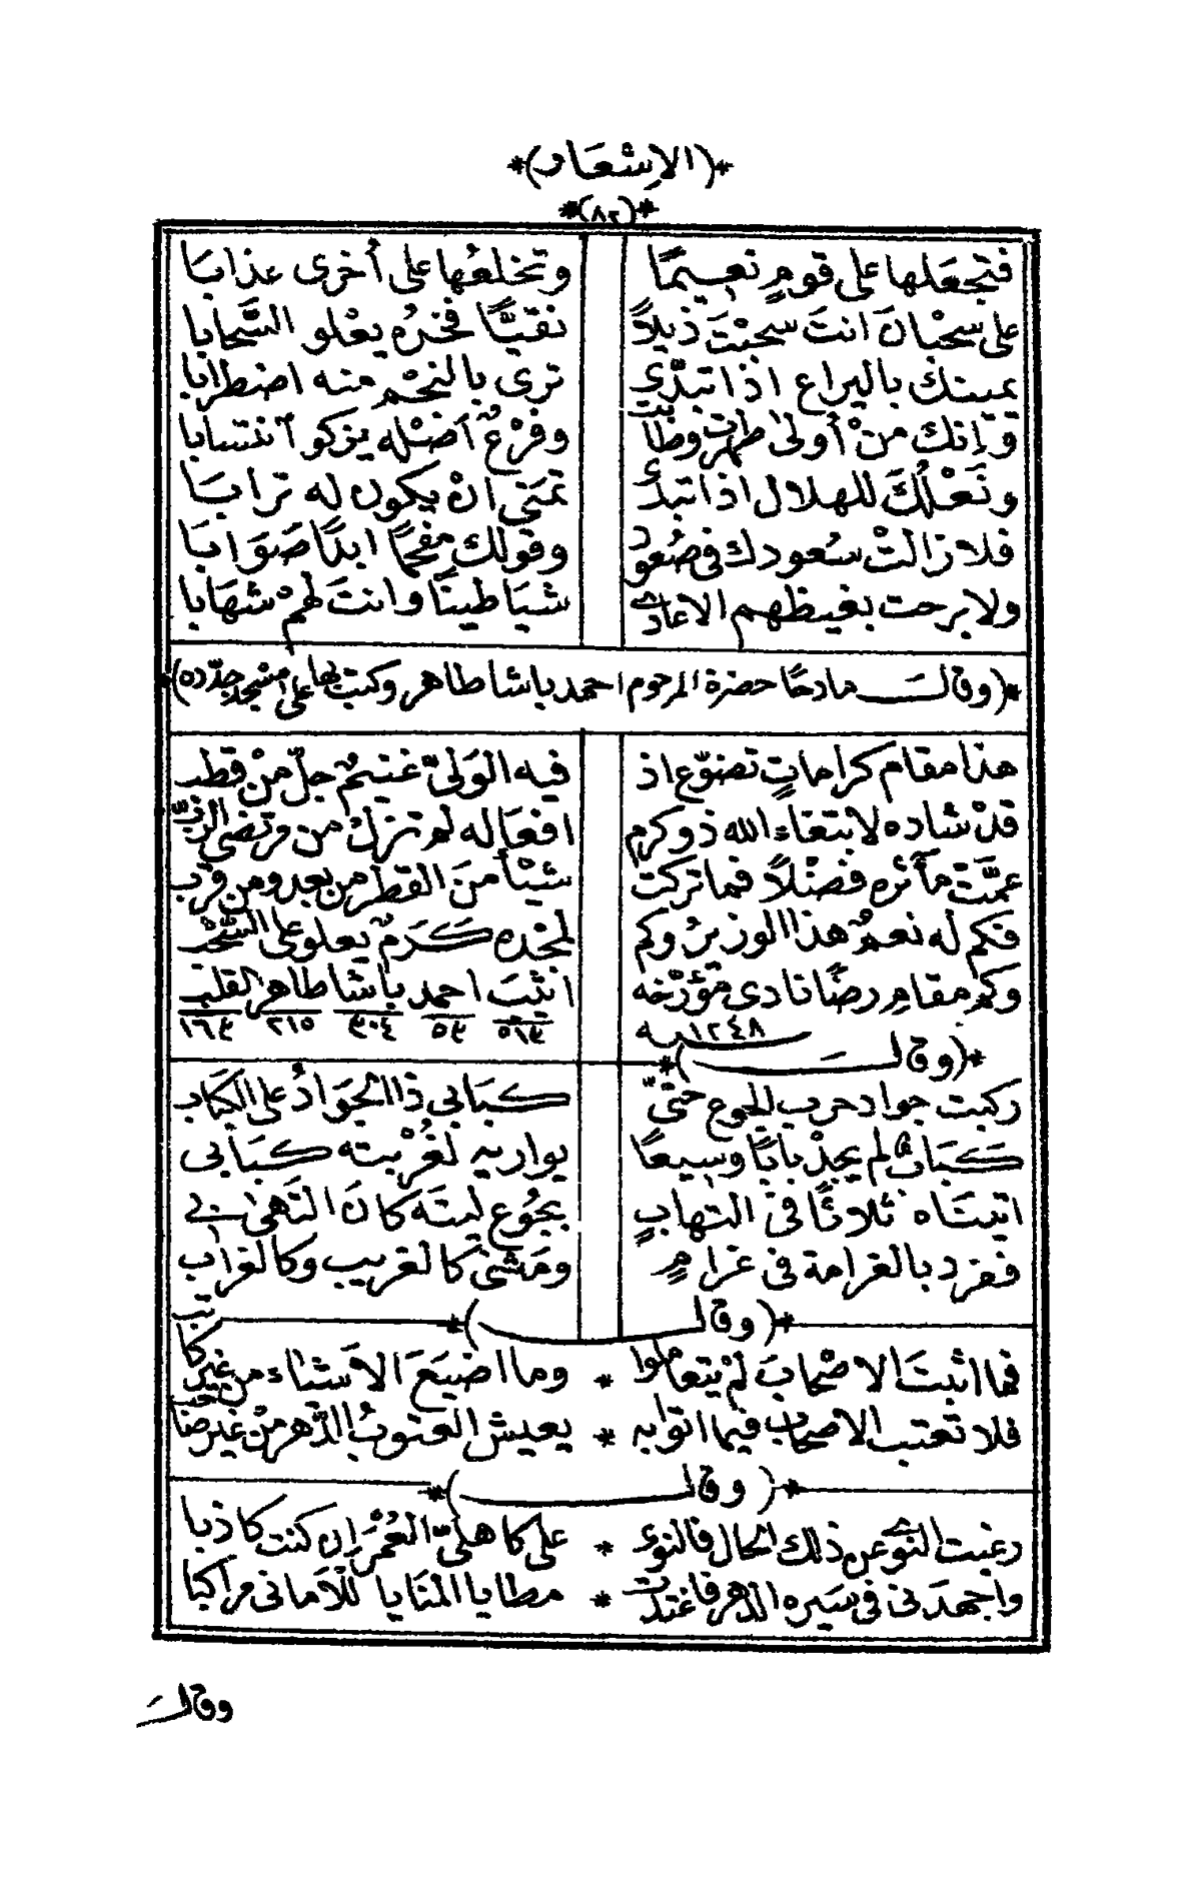 *(الاشعار)*
*(٨٢)*
فتجعلها على قومٍ نعيمًا وتخلعُها على أخرى عذابا
على سحبانَ انتَ سحبْتَ ذيلاً نقيًّا فخرُه يعْلو السَّحابا
يمينك باليراع اذا تبدّى ترى بالنجْم منه اضطرابا
وإنك منْ أولى طهرت وطابت وفرْعٌ أصْله يزكو انتسابا
ونَعْلُكَ للهلال اذا تبدّى تمنى انْ يكون له ترابا
فلا زالتْ سُعودك فى صُعود وقولك مفحمًا ابدًا صَوَابا
ولا برحت بغيظهم الاعادى شيَاطينًا وانتَ لهمْ شهَابا
*(وقالــ مادحًا حضرة المرحوم احمد باشا طاهر وكتبت بها على مسجد جدّده)*
هذا مقام كراماتٍ تضوّع اذ فيه الوَلىّ غنيمٌ جلّ منْ قطب
قدْ شاده لابتغاء الله ذو كرم افعاله لم تزلْ من مرتضى الربّ
عمَّتْ مآثره فضْلاً فما تركت شيْأً منَ القطر من بعد ومن قرب
فكم له نعمٌ هذا الوزيرُ وكم لمجْده كَرَمٌ يعلو على السُّحْب
وكم مقامِ رضًا نادى مؤرّخه انثيبَ احمد باشا طاهر القلب
١٢٤٨ـه ٥١٣ ٥٣ ٣٠٤ ٢١٥ ١٦٣
*(وقالــ)*
ركبت جواد حرب الجوع حتّى كبَابى ذا الجَوَادُ على الكَبَاب
كَبَاب لم يجدْ بابًا وسيعًا يواريه لغُرْبته كبَابى
اتينَاه ثلاثًا فى التهابٍ بجُوعٍ ليتَه كانَ التَهى بى
ففرد بالغرامة فى غرامٍ ومَشى كالغريب وكالغراب
*(وقالــ)*
فما اثبتَ الاصْحابَ لمْ يتعاملوا * وما اضيَعَ الاشياء من غير كاتب
فلا تعتب الاصحاب فيما اتوا به * يعيش العتوبُ الدّهر منْ غير صاحب
*(وقالــ)*
رغبت النوى عن ذلك الحال فالنوى * على كاهلىّ العُمْرَ ان كنت كاذبا
واجهدَنى فى سَيره الدهر فاغتدت * مطايا المنايا للْأمانى مراكبا
وقالَــ